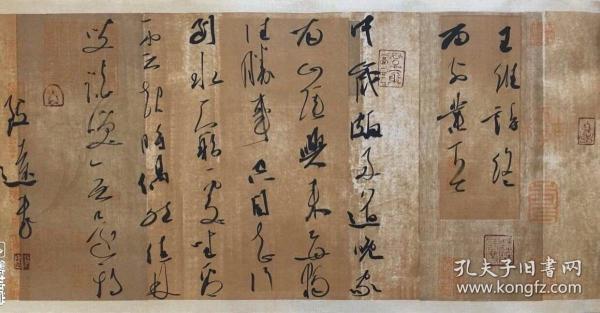 王維詩終
南
業
中歲頗好道晚家
南山陲興來每獨
往勝事空自知行
到水窮處坐看
雲起時偶然值林
叟談笑
遠書
孔夫子旧书网
www.kongfz.com